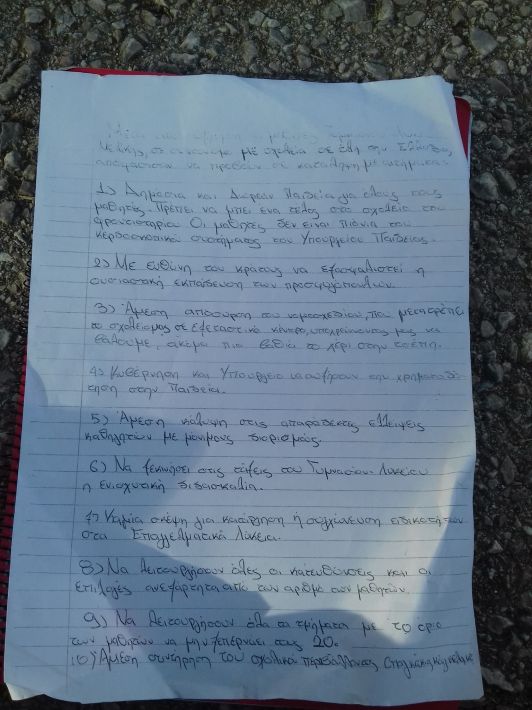 με σχολεία σε όλη την Ελλάδα,
αποφάσισαν να προβούν σε κατάληψη με αιτήματα:
1) Δημόσια και Δωρεάν Παιδεία για όλους τους
μαθητές. Πρέπει να μπει ένα τέλος στο σχολείο του
φροντιστηρίου Οι μαθητές δεν είναι πιόνια του
κερδοσκοπικού συστήματος του Υπουργείου Παιδείας.
2) Με ευθύνη του κράτους να εξασφαλιστεί η
ουσιαστική εκπαίδευση των προσφυγόπουλων.
3) Άμεση απόσυρση του νομοσχεδίου, που μετατρέπει
το σχολείο μας σε εξεταστικό κέντρο, υποχρεώνοντάς μας να
βάλουμε, ακόμα πιο βαθιά το χέρι στην τσέπη.
4) Κυβέρνηση και Υπουργείο να αυξήσουν την χρηματοδό-
τηση στην Παιδεία.
5) Άμεση κάλυψη στις απαράδεκτες ελλείψεις
καθηγητών με μόνιμους διορισμούς.
6) Να ξεκινήσει στις τάξεις του Γυμνασίου-Λυκείου
η ενισχυτική διδασκαλία.
7) Καμία σκέψη για κατάργηση ή συγχώνευση ειδικοτήτων
στα Επαγγελματικά Λύκεια.
8) Να λειτουργήσουν όλες οι κατευθύνσεις και οι
επιλογές ανεξάρτητα από τον αριθμό των μαθητών.
9) Να λειτουργήσουν όλα τα τμήματα με το όριο
των μαθητών να μην ξεπερνάει τους 20.
10) Άμεση συντήρηση του σχολικού περιβάλλοντος